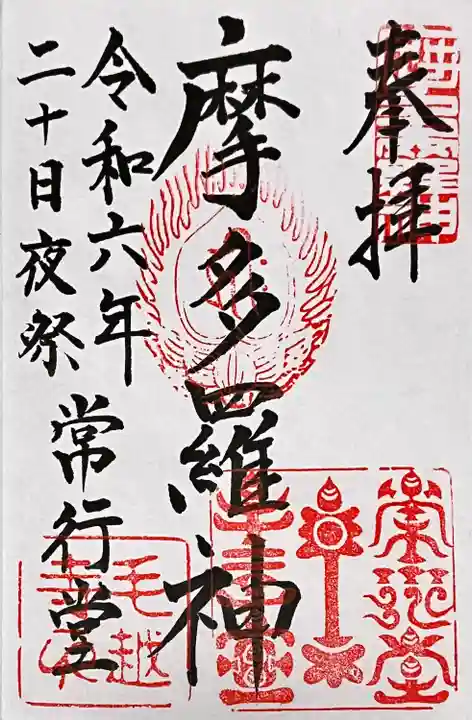 奉拝
摩多羅神
令和六年
二十日夜祭
常行堂
毛越